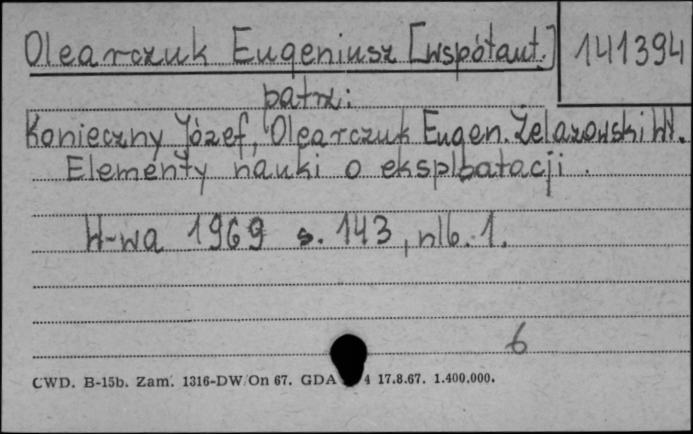 Olearczuk Eugeniusz [współaut.] 141394
patrz:
Konieczny Józef, Olearczuk Eugen. Żelazowski Wł.
Elementy nauki o eksploatacji.
W-wa 1969 s. 143, nlb. 1.
6
CWD. B-15b. Zam. 1316-DW/On 67. GDA 4 17.8.67. 1.400.000.